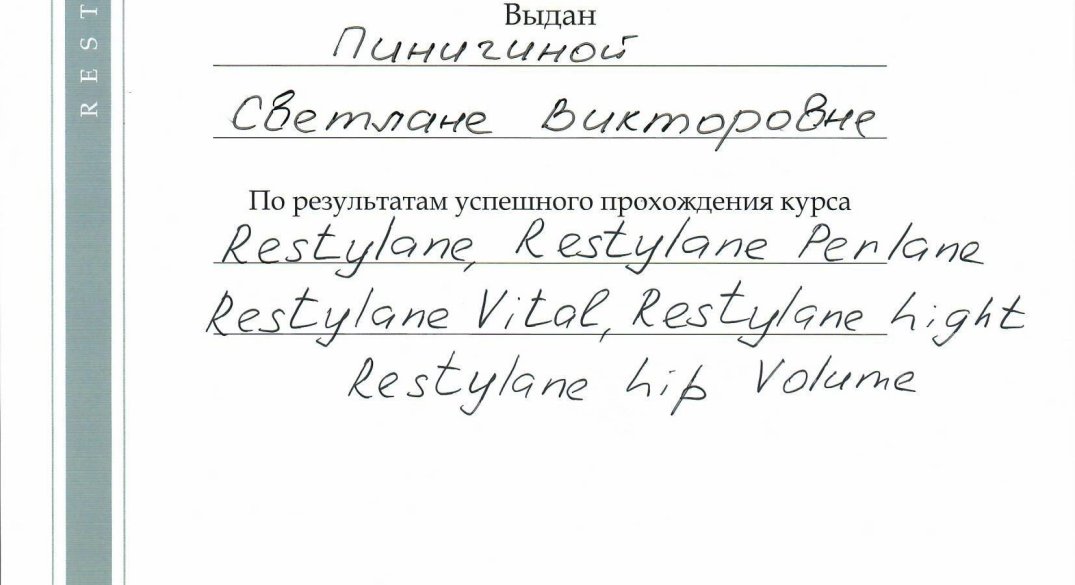 REST
Выдан
Пинигиной
Светлане Викторовне
По результатам успешного прохождения курса
Restylane, Restylane Perlane
Restylane Vital, Restylane hight
Restylane hip Volume